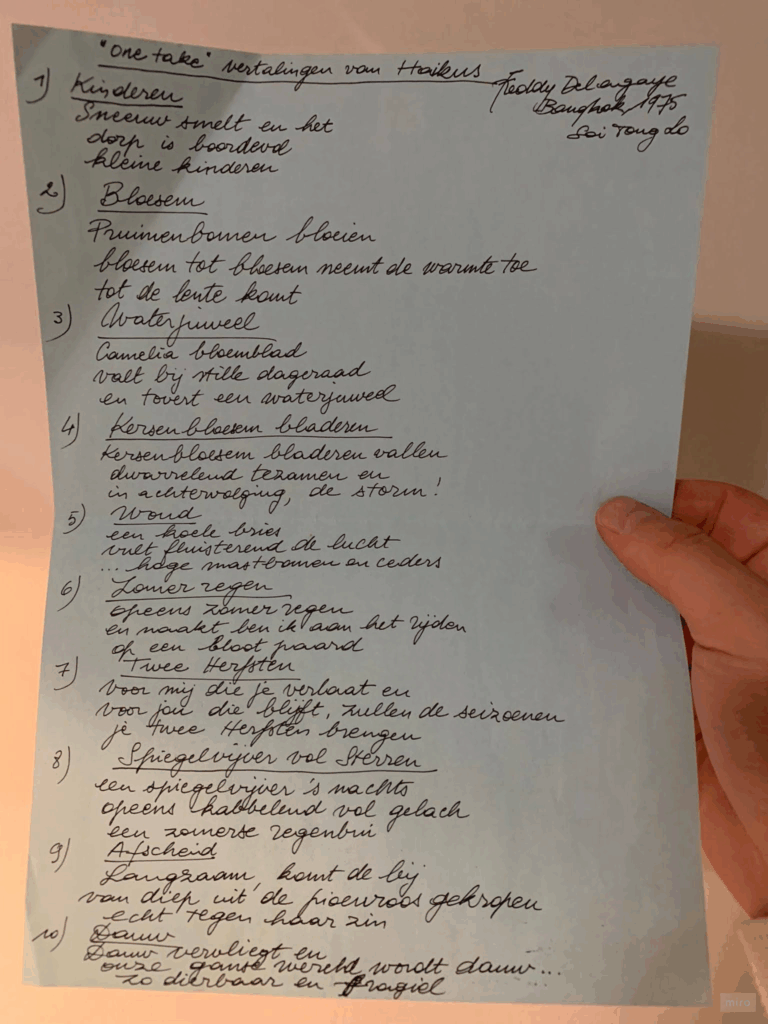 "One take" vertalingen van Haikus
Freddy Delagaye
Bangkok, 1975
Soi Tong Lo
1) Kinderen
Sneeuw smelt en het
dorp is boordevol
kleine kinderen
2) Bloesem
Pruimenbomen bloeien
bloesem tot bloesem neemt de warmte toe
tot de lente komt
3) Waterjuweel
Camelia bloemblad
valt bij stille dageraad
en tovert een waterjuweel
4) Kersenbloesem bladeren
Kersenbloesem bladeren vallen
dwarrelend tezamen en
in achtervolging, de storm!
5) Woud
een koele bries
vult fluisterend de lucht
... hoge mastbomen en ceders
6) Zomer regen
opeens zomer regen
en naakt ben ik aan het rijden
op een bloot paard
7) Twee Herfsten
voor mij die je verlaat en
voor jou die blijft, zullen de seizoenen
je twee Herfsten brengen
8) Spiegelvijver vol Sterren
een spiegelvijver 's nachts
opeens kabbelend vol gelach
een zomerse regenbui
9) Afscheid
Langzaam, komt de bij
van diep uit de pioenroos gekropen
echt tegen haar zin
10) Dauw
Dauw vervliegt en
onze ganse wereld wordt dauw...
zo dierbaar en fragiel
miro